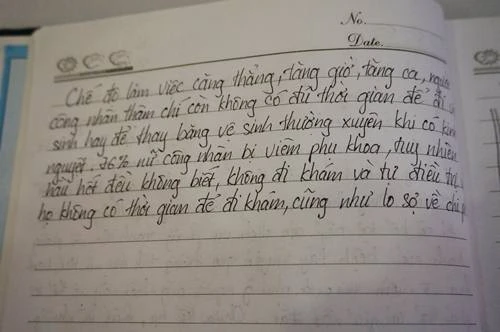 No.
Date.
Chế độ làm việc căng thẳng, tăng giờ, tăng ca, người
công nhân thậm chí còn không có đủ thời gian để đi
sinh hay để thay băng vệ sinh thường xuyên khi có kinh
nguyệt. 36% nữ công nhân bị viêm phụ khoa, tuy nhiên
hầu hết đều không biết, không đi khám và tự điều trị
họ không có thời gian để đi khám, cũng như lo sợ về chi